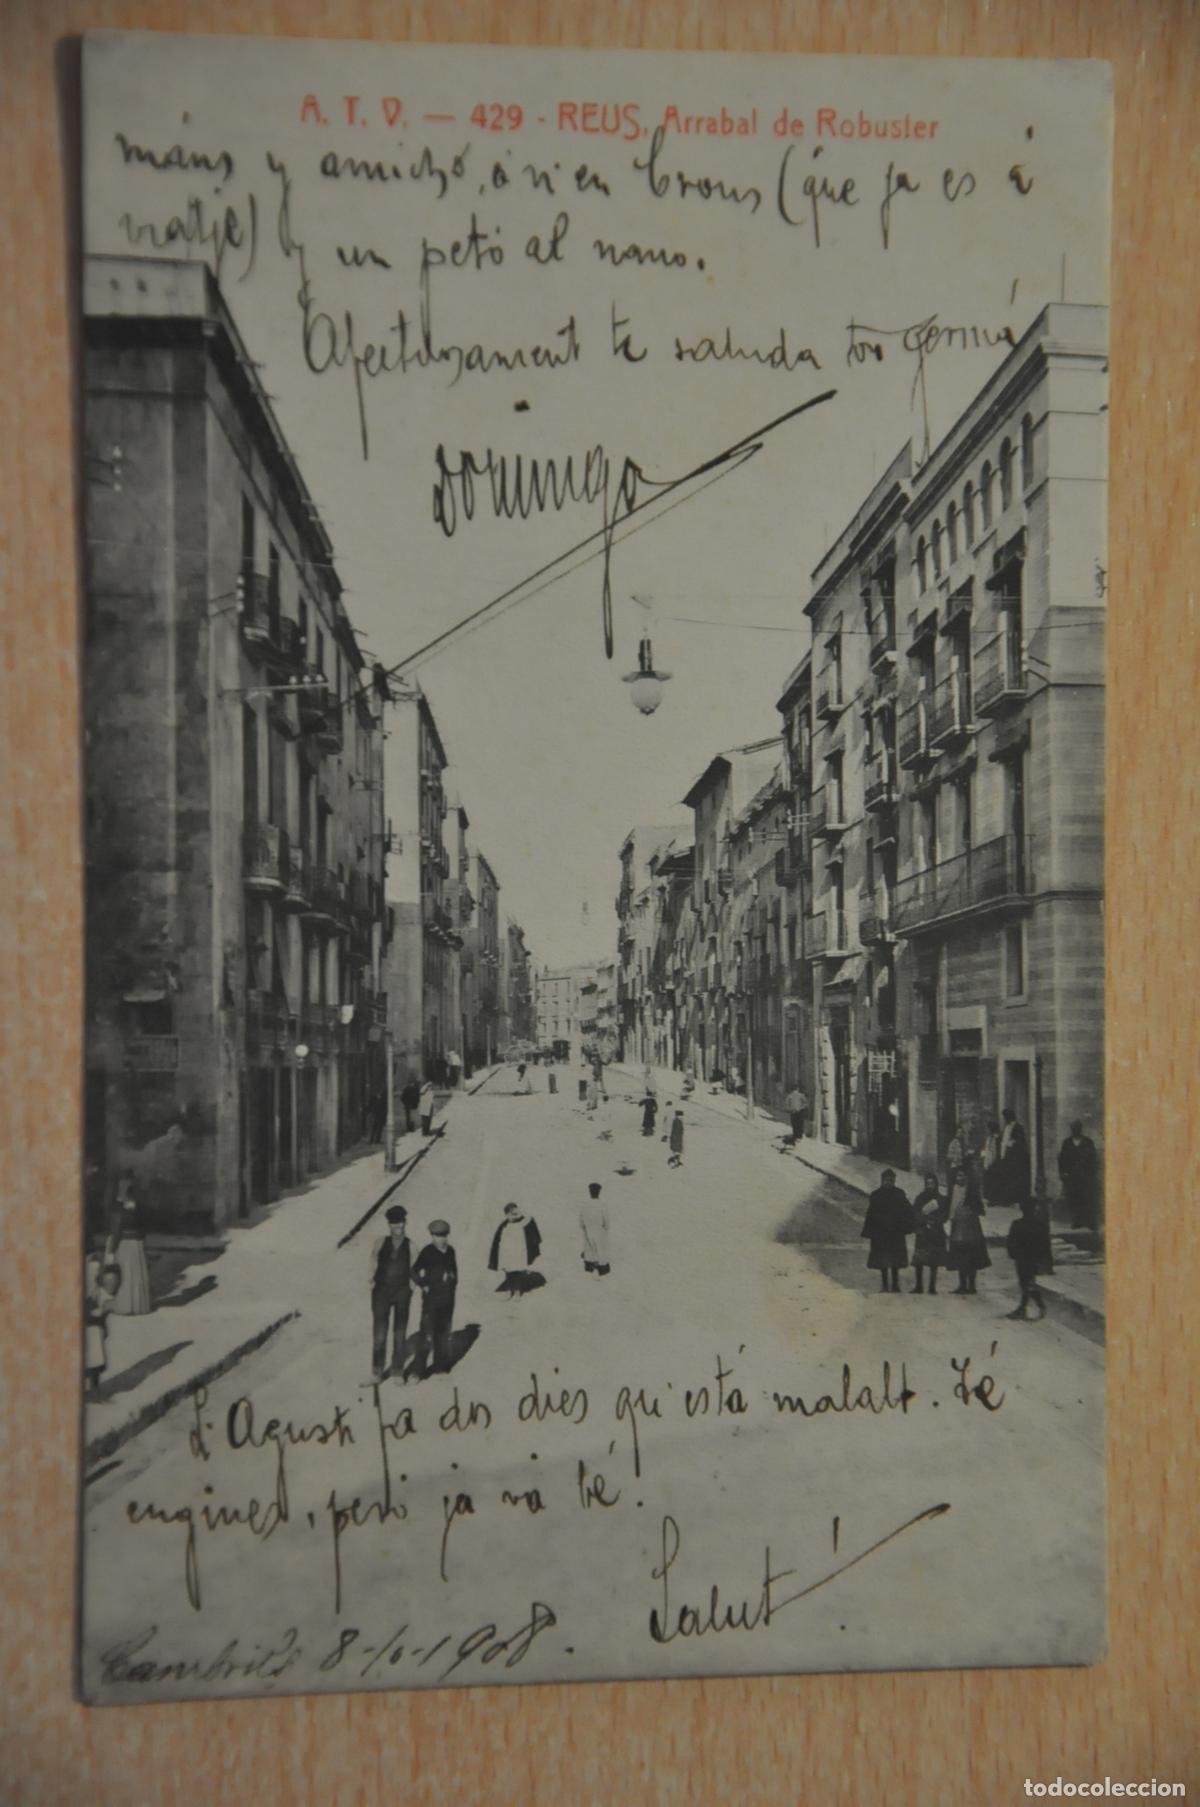 A. T. V. — 429 - REUS, Arrabal de Robuster
máns y amichs, á n'en Crous (que ja es á
viatje) y un petó al nano.
Afectuosament te saluda ton germá
Domingo
L'Agustí fa dos dies qu'está malalt. Té
engines, peró ja va bé.
Salut!
Cambrils 8-10-1908.
todocoleccion